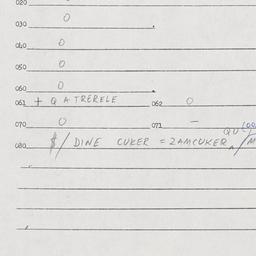 020
030 0
040 0
050 0
060 0
061 + Q A TRERELE 062 0
070 0 071 —
080 $/ DINE CUKER = ZAMCUKER
QU